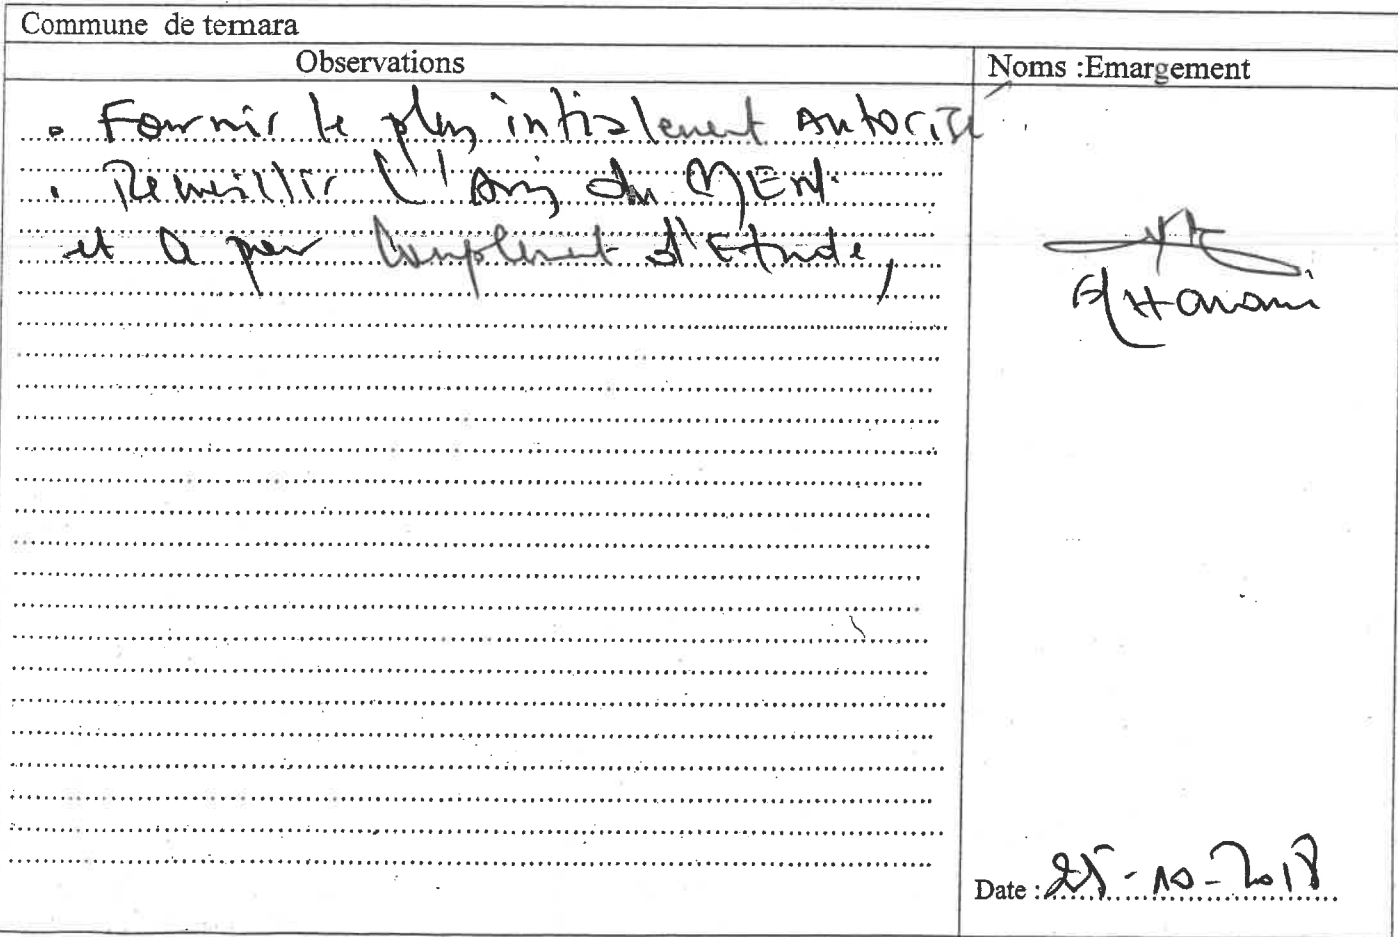 Commune de temara
Observations
Noms :Emargement
. Fournir le plan initialement Autorisé
. Recueillir L'Avis du MEN.
et a per Complement d'Etude,
El Harami
Date : 25-10-2018